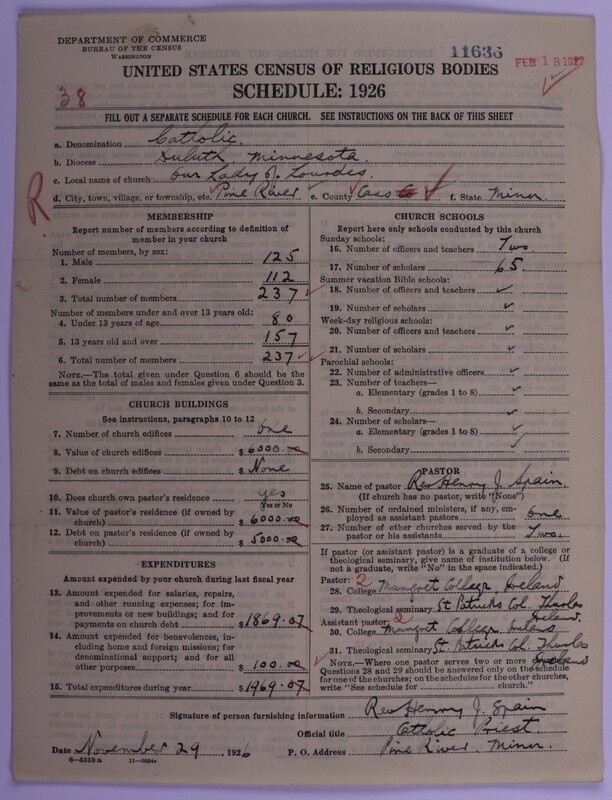 DEPARTMENT OF COMMERCE
BUREAU OF THE CENSUS
WASHINGTON
11636
FEB 18 1927
UNITED STATES CENSUS OF RELIGIOUS BODIES
38
SCHEDULE: 1926
FILL OUT A SEPARATE SCHEDULE FOR EACH CHURCH. SEE INSTRUCTIONS ON THE BACK OF THIS SHEET
a. Denomination Catholic.
b. Diocese Duluth, Minnesota.
c. Local name of church Our Lady of Lourdes.
d. City, town, village, or township, etc. Pine River e. County Cass Co f. State Minn
R
MEMBERSHIP
Report number of members according to definition of
member in your church
Number of members, by sex:
1. Male 125
2. Female 112
3. Total number of members 237
Number of members under and over 13 years old:
4. Under 13 years of age 80
5. 13 years old and over 157
6. Total number of members 237
NOTE.—The total given under Question 6 should be the
same as the total of males and females given under Question 3.
CHURCH BUILDINGS
See instructions, paragraphs 10 to 12
7. Number of church edifices One
8. Value of church edifices $ 6000.00
9. Debt on church edifices $ None
10. Does church own pastor's residence yes
Yes or No
11. Value of pastor's residence (if owned by
church) $ 6000.00
12. Debt on pastor's residence (if owned by
church) $ 5000.00
EXPENDITURES
Amount expended by your church during last fiscal year
13. Amount expended for salaries, repairs,
and other running expenses; for im-
provements or new buildings; and for
payments on church debt $ 1869.07
14. Amount expended for benevolences, in-
cluding home and foreign missions; for
denominational support; and for all
other purposes $ 100.00
15. Total expenditures during year $ 1969.07
CHURCH SCHOOLS
Report here only schools conducted by this church
Sunday schools:
16. Number of officers and teachers Two
17. Number of scholars 65
Summer vacation Bible schools:
18. Number of officers and teachers
19. Number of scholars
Week-day religious schools:
20. Number of officers and teachers
21. Number of scholars
Parochial schools:
22. Number of administrative officers
23. Number of teachers—
a. Elementary (grades 1 to 8)
b. Secondary
24. Number of scholars—
a. Elementary (grades 1 to 8)
b. Secondary
PASTOR
25. Name of pastor Rev Henry J. Spain.
(If church has no pastor, write "None")
26. Number of ordained ministers, if any, em-
ployed as assistant pastors One
27. Number of other churches served by the
pastor or his assistants Two.
If pastor (or assistant pastor) is a graduate of a college or
theological seminary, give name of institution below. (If
not a graduate, write "No" in the space indicated.)
Pastor: 2
28. College Mungret College Ireland
29. Theological seminary St Patricks Col. Thurles
Ireland.
Assistant pastor: 2
30. College Mungret College Ireland
31. Theological seminary St Patricks Col. Thurles
Ireland
NOTE.—Where one pastor serves two or more
Questions 28 and 29 should be answered only on the schedule
for one of the churches; on the schedules for the other churches,
write "See schedule for church."
Signature of person furnishing information Rev Henry J. Spain
Official title Catholic Priest.
Date November 29, 1926 P. O. Address Pine River, Minn.
8—5518 a